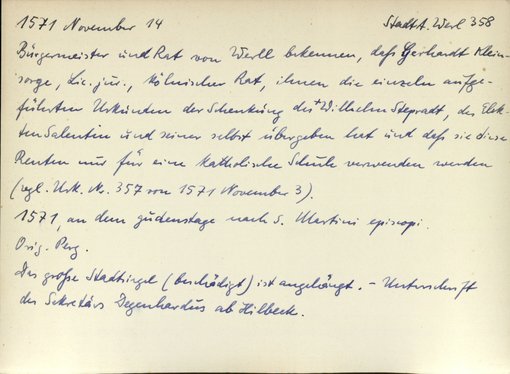 1571 November 14 Stadt A. Werl 358
Bürgermeister und Rat von Werll bekennen, daß Gerhardt Klein-
sorge, Lic. jur., Kölnischer Rat, ihnen die einzeln aufge-
führten Urkunden der Schenkung des + Wilhelm Stepradt, des Elek-
ten Salentin und seiner selbst übergeben hat und daß sie diese
Renten nur für eine katholische Schule verwenden werden
(vgl. Urk. Nr. 357 von 1571 November 3).
1571, an dem gudenstage nach s. Martini episcopi.
Orig. Perg.
Das große Stadtsiegel (beschädigt) ist angehängt. - Unterschrift
des Sekretärs Degenhardus ab Hilbeck.